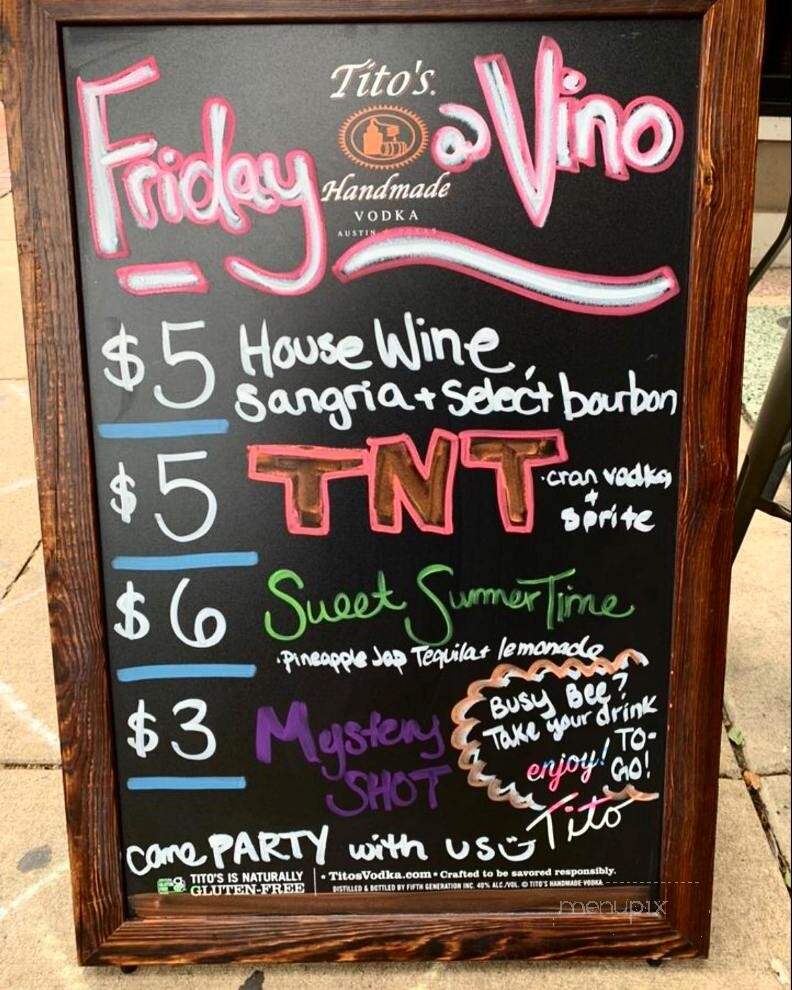 Tito's.
Friday @ Vino
Handmade
VODKA
AUSTIN TEXAS
$5 House Wine,
Sangria + Select bourbon
$5 TNT
• cran vodka
+
Sprite
$6 Sweet SummerTime
• Pineapple Jap Tequila + lemonade
$3 Mystery
SHOT
Busy Bee?
Take your drink
TO-
enjoy! GO!
Tito
come PARTY with us
TITO'S IS NATURALLY
GLUTEN-FREE
• TitosVodka.com • Crafted to be savored responsibly.
DISTILLED & BOTTLED BY FIFTH GENERATION INC. 40% ALC./VOL. © TITO'S HANDMADE VODKA
menupix